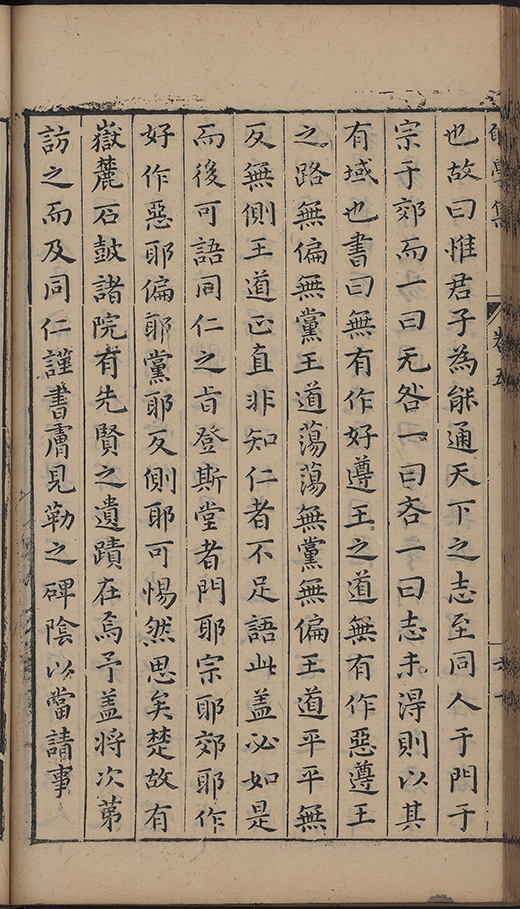 也故曰惟君子為能通天下之志至同人于門于
宗于郊而一曰无咎一曰吝一曰志未得則以其
有域也書曰無有作好遵王之道無有作惡遵王
之路無偏無黨王道蕩蕩無黨無偏王道平平無
反無側王道正直非知仁者不足語此盖必如是
而後可語同仁之旨登斯堂者門耶宗耶郊耶作
好作惡耶偏耶黨耶反側耶可惕然思矣楚故有
嶽麓石鼓諸院有先賢之遺蹟在焉予盖將次苐
訪之而及同仁謹書膚見勒之碑陰以當請事